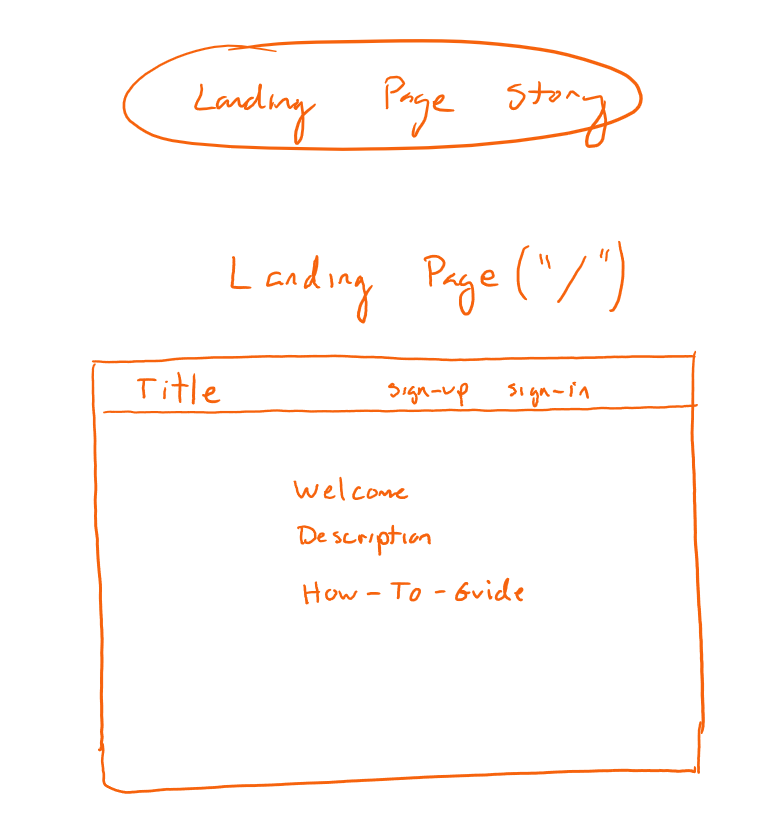 Landing Page Story
Landing Page ("/")
Title sign-up sign-in
Welcome
Description
How-To-Guide